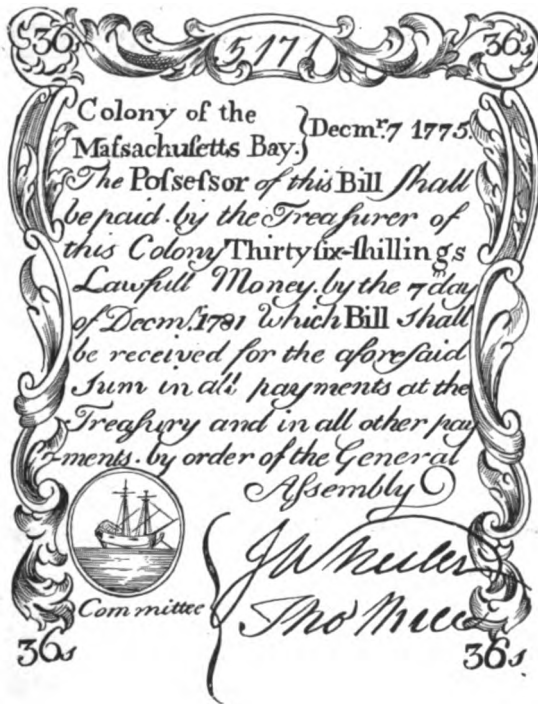 36s 5171 36s
Colony of the
Maſsachuſetts Bay. } Decmr. 7 1775.
The Poſseſsor of this Bill ſhall
be paid by the Treaſurer of
this Colony Thirty ſix-ſhillings
Lawfull Money. by the 7th day
of Decmr. 1781 which Bill ſhall
be received for the aforeſaid
Sum in all payments at the
Treaſury and in all other pay
-ments. by order of the General
Aſsembly
Committee
J Wheeler
Tho
36s 36s